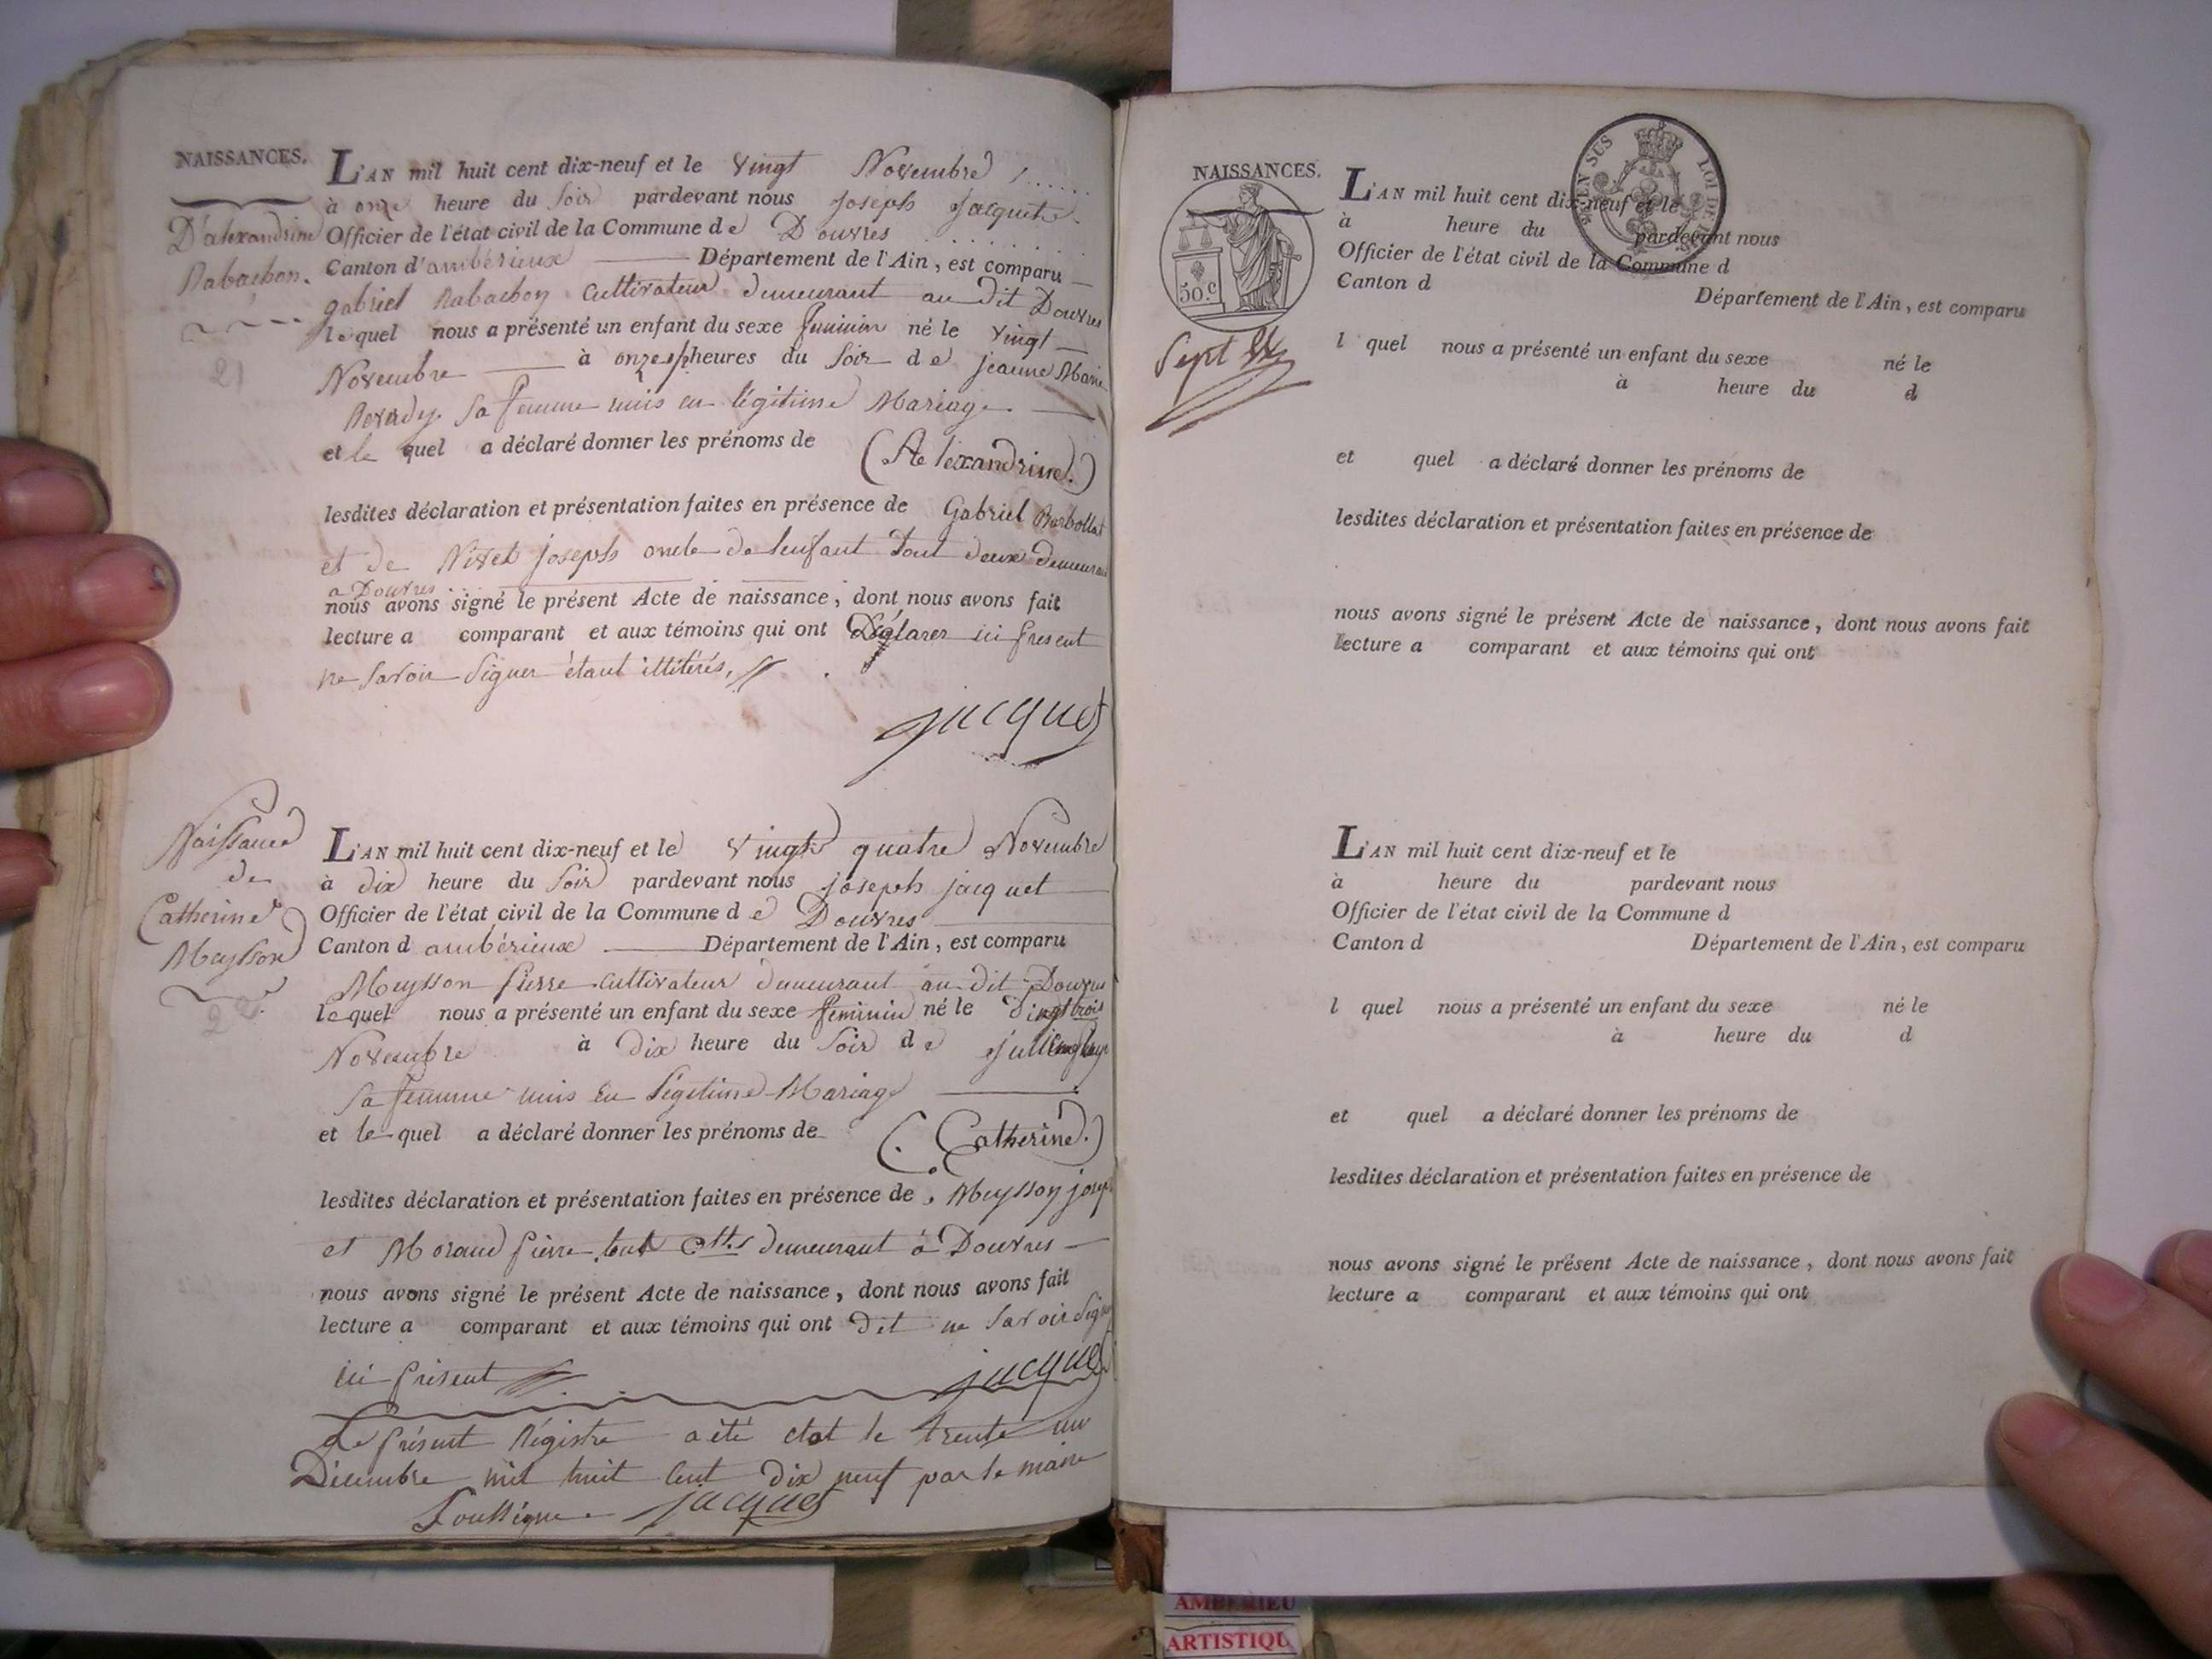 NAISSANCES.
D'alexandrine
Rabachon.
21
L'AN mil huit cent dix-neuf et le vingt Novembre
à onze heure du soir pardevant nous joseph jacquet
Officier de l'état civil de la Commune de Douvres
Canton d'ambérieux Département de l'Ain, est comparu
gabriel Rabachon cultivateur demeurant au dit Douvres
lequel nous a présenté un enfant du sexe feminin né le vingt
Novembre à onze heures du soir de jeanne Marie
sa femme unis en légitime Mariage
et le quel a déclaré donner les prénoms de (Alexandrine.)
lesdites déclaration et présentation faites en présence de Gabriel Barbollat
et de Nivet joseph oncle de lenfant tout deux demeurant
a Douvres
nous avons signé le présent Acte de naissance, dont nous avons fait
lecture a comparant et aux témoins qui ont Déclarer ici présent
ne savoir signer étant illitérés.
jacquet
Naissance
de
Catherine
Meysson
22
L'AN mil huit cent dix-neuf et le vingt quatre Novembre
à dix heure du soir pardevant nous joseph jacquet
Officier de l'état civil de la Commune de Douvres
Canton d ambérieux Département de l'Ain, est comparu
Meysson pierre cultivateur demeurant au dit Douvres
lequel nous a présenté un enfant du sexe feminin né le vingt trois
Novembre à dix heure du soir de
sa femme unis en légitime Mariage
et le quel a déclaré donner les prénoms de (Catherine.)
lesdites déclaration et présentation faites en présence de Meysson joseph
et Morand pierre tout demeurant à Douvres
nous avons signé le présent Acte de naissance, dont nous avons fait
lecture a comparant et aux témoins qui ont dit ne savoir signer
ici présent jacquet
Le présent Régistre a été clot le trente un
Décembre mil huit cent dix neuf par le maire
soussigné jacquet
NAISSANCES.
50.c
EN SUS
LOI DE
Sept
L'AN mil huit cent dix-neuf et le
à heure du pardevant nous
Officier de l'état civil de la Commune d
Canton d Département de l'Ain, est comparu
l quel nous a présenté un enfant du sexe né le
à heure du d
et quel a déclaré donner les prénoms de
lesdites déclaration et présentation faites en présence de
nous avons signé le présent Acte de naissance, dont nous avons fait
lecture a comparant et aux témoins qui ont
L'AN mil huit cent dix-neuf et le
à heure du pardevant nous
Officier de l'état civil de la Commune d
Canton d Département de l'Ain, est comparu
l quel nous a présenté un enfant du sexe né le
à heure du d
et quel a déclaré donner les prénoms de
lesdites déclaration et présentation faites en présence de
nous avons signé le présent Acte de naissance, dont nous avons fait
lecture a comparant et aux témoins qui ont
AMBERIEU
ARTISTIQU